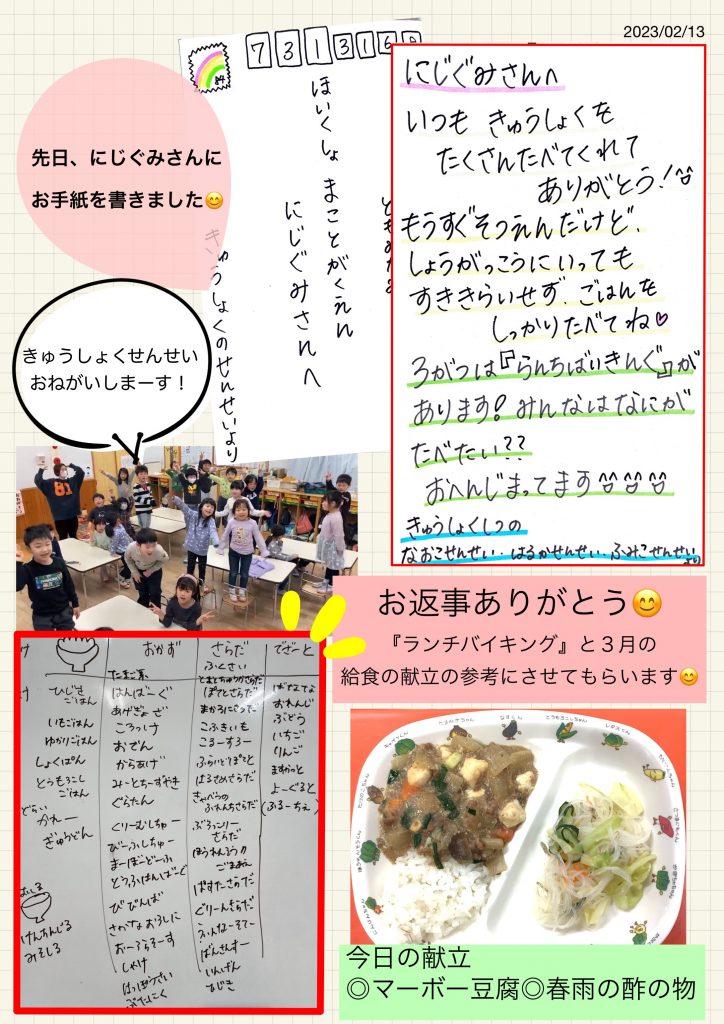 2023/02/13
先日、にじぐみさんに
お手紙を書きました😊
84
7313169
ほいくしょ まことがくえん
にじぐみさんへ
きゅうしょくのせんせいより
にじぐみさんへ
いつも きゅうしょくを
たくさんたべてくれて
ありがとう!^^
もうすぐそつえんだけど、
しょうがっこうにいっても
すききらいせず、ごはんを
しっかりたべてね♡
3がつは『らんちばいきんぐ』が
あります!みんなはなにが
たべたい??
おへんじまってます^^ ^^ ^^
きゅうしょくしつの
なおこせんせい・はるかせんせい・ふみこせんせいより
きゅうしょくせんせい
おねがいしまーす!
お返事ありがとう😊
『ランチバイキング』と3月の
給食の献立の参考にさせてもらいます😊
ひじき
ごはん
いもごはん
ゆかりごはん
しょくぱん
とうもろこし
ごはん
どらい
かれー
ぎゅうどん
けんちんじる
みそしる
おかず
はんばーぐ
あげぎょうざ
ころっけ
おでん
からあげ
みーとちーずやき
ぐらたん
くりーむしちゅー
びーふしちゅー
まーぼーどーふ
とうふはんばーぐ
びびんば
さかなおろしに
おーろらそーす
しゃけ
はっぽうさい
ぶたにく
さらだ
ふくさい
ぽてとさらだ
まかろにさらだ
こふきいも
こーるすろー
ふらいどぽてと
はるさめさらだ
きゃべつの
ふれんちさらだ
ぶろっこりー
さらだ
ほうれんそうの
ごまあえ
ぱすたーさらだ
ぐりーんさらだ
ばんさんすー
いんげん
ひじき
でざーと
ばなな
おれんじ
ぶどう
いちご
りんご
ますかっと
よーぐると
(ふるーちぇ)
今日の献立
◎マーボー豆腐◎春雨の酢の物